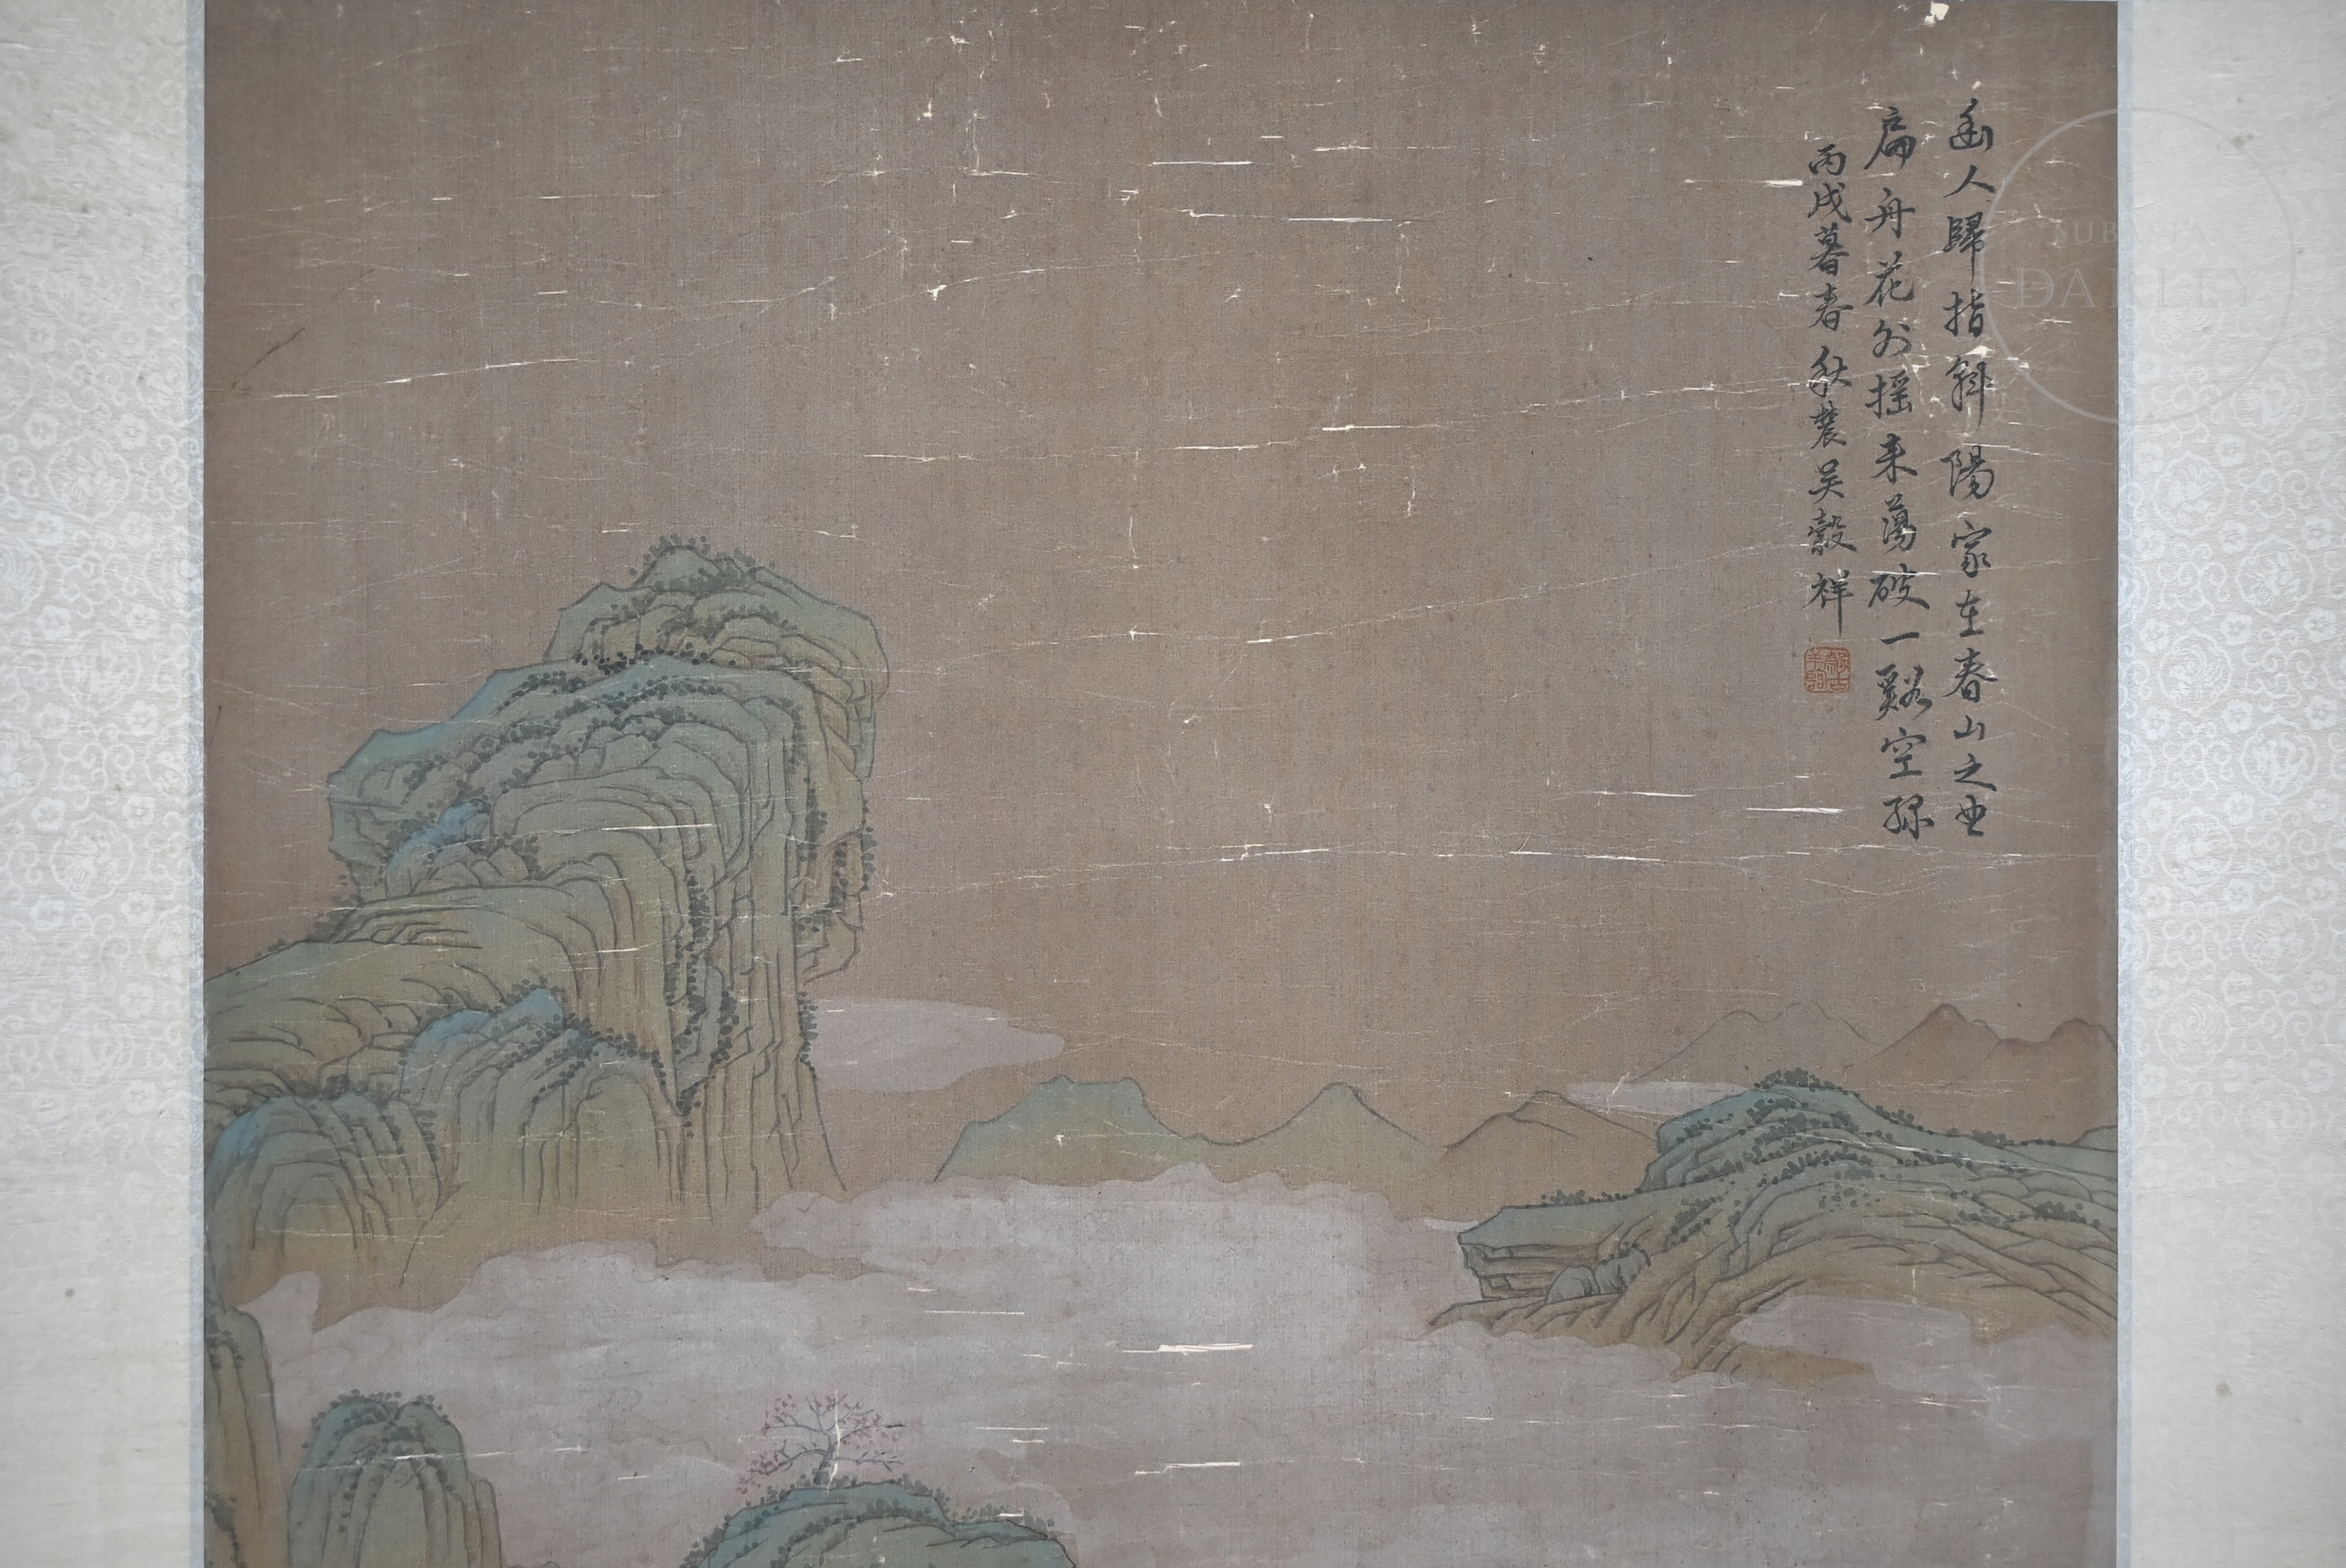 幽人歸指斜陽家在春山之曲
扁舟花外搖来蕩破一谿空綠
丙戌暮春秋農吴穀祥
DARLEY